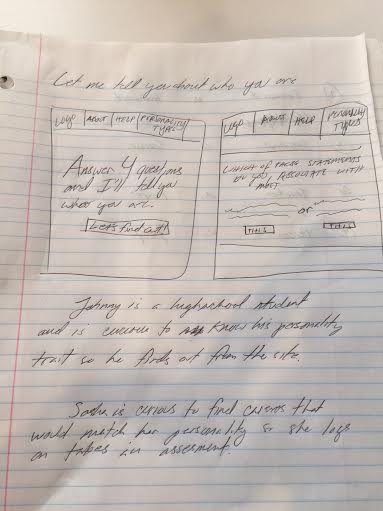 Let me tell you about who you are
LOGO ABOUT HELP PERSONALITY
TYPES
Answer 4 questions
and I'll tell you
who you are.
Let's find out!
LOGO ABOUT HELP PERSONALITY
TYPES
WHICH OF THESE STATEMENTS
DO YOU, RESOLIATE WITH
MOST
or
THIS THIS
Johnny is a highschool student
and is curious to know his personality
trait so he finds out from the site.
Sasha is curious to find careers that
would match her personality so she logs
on takes in assesment.